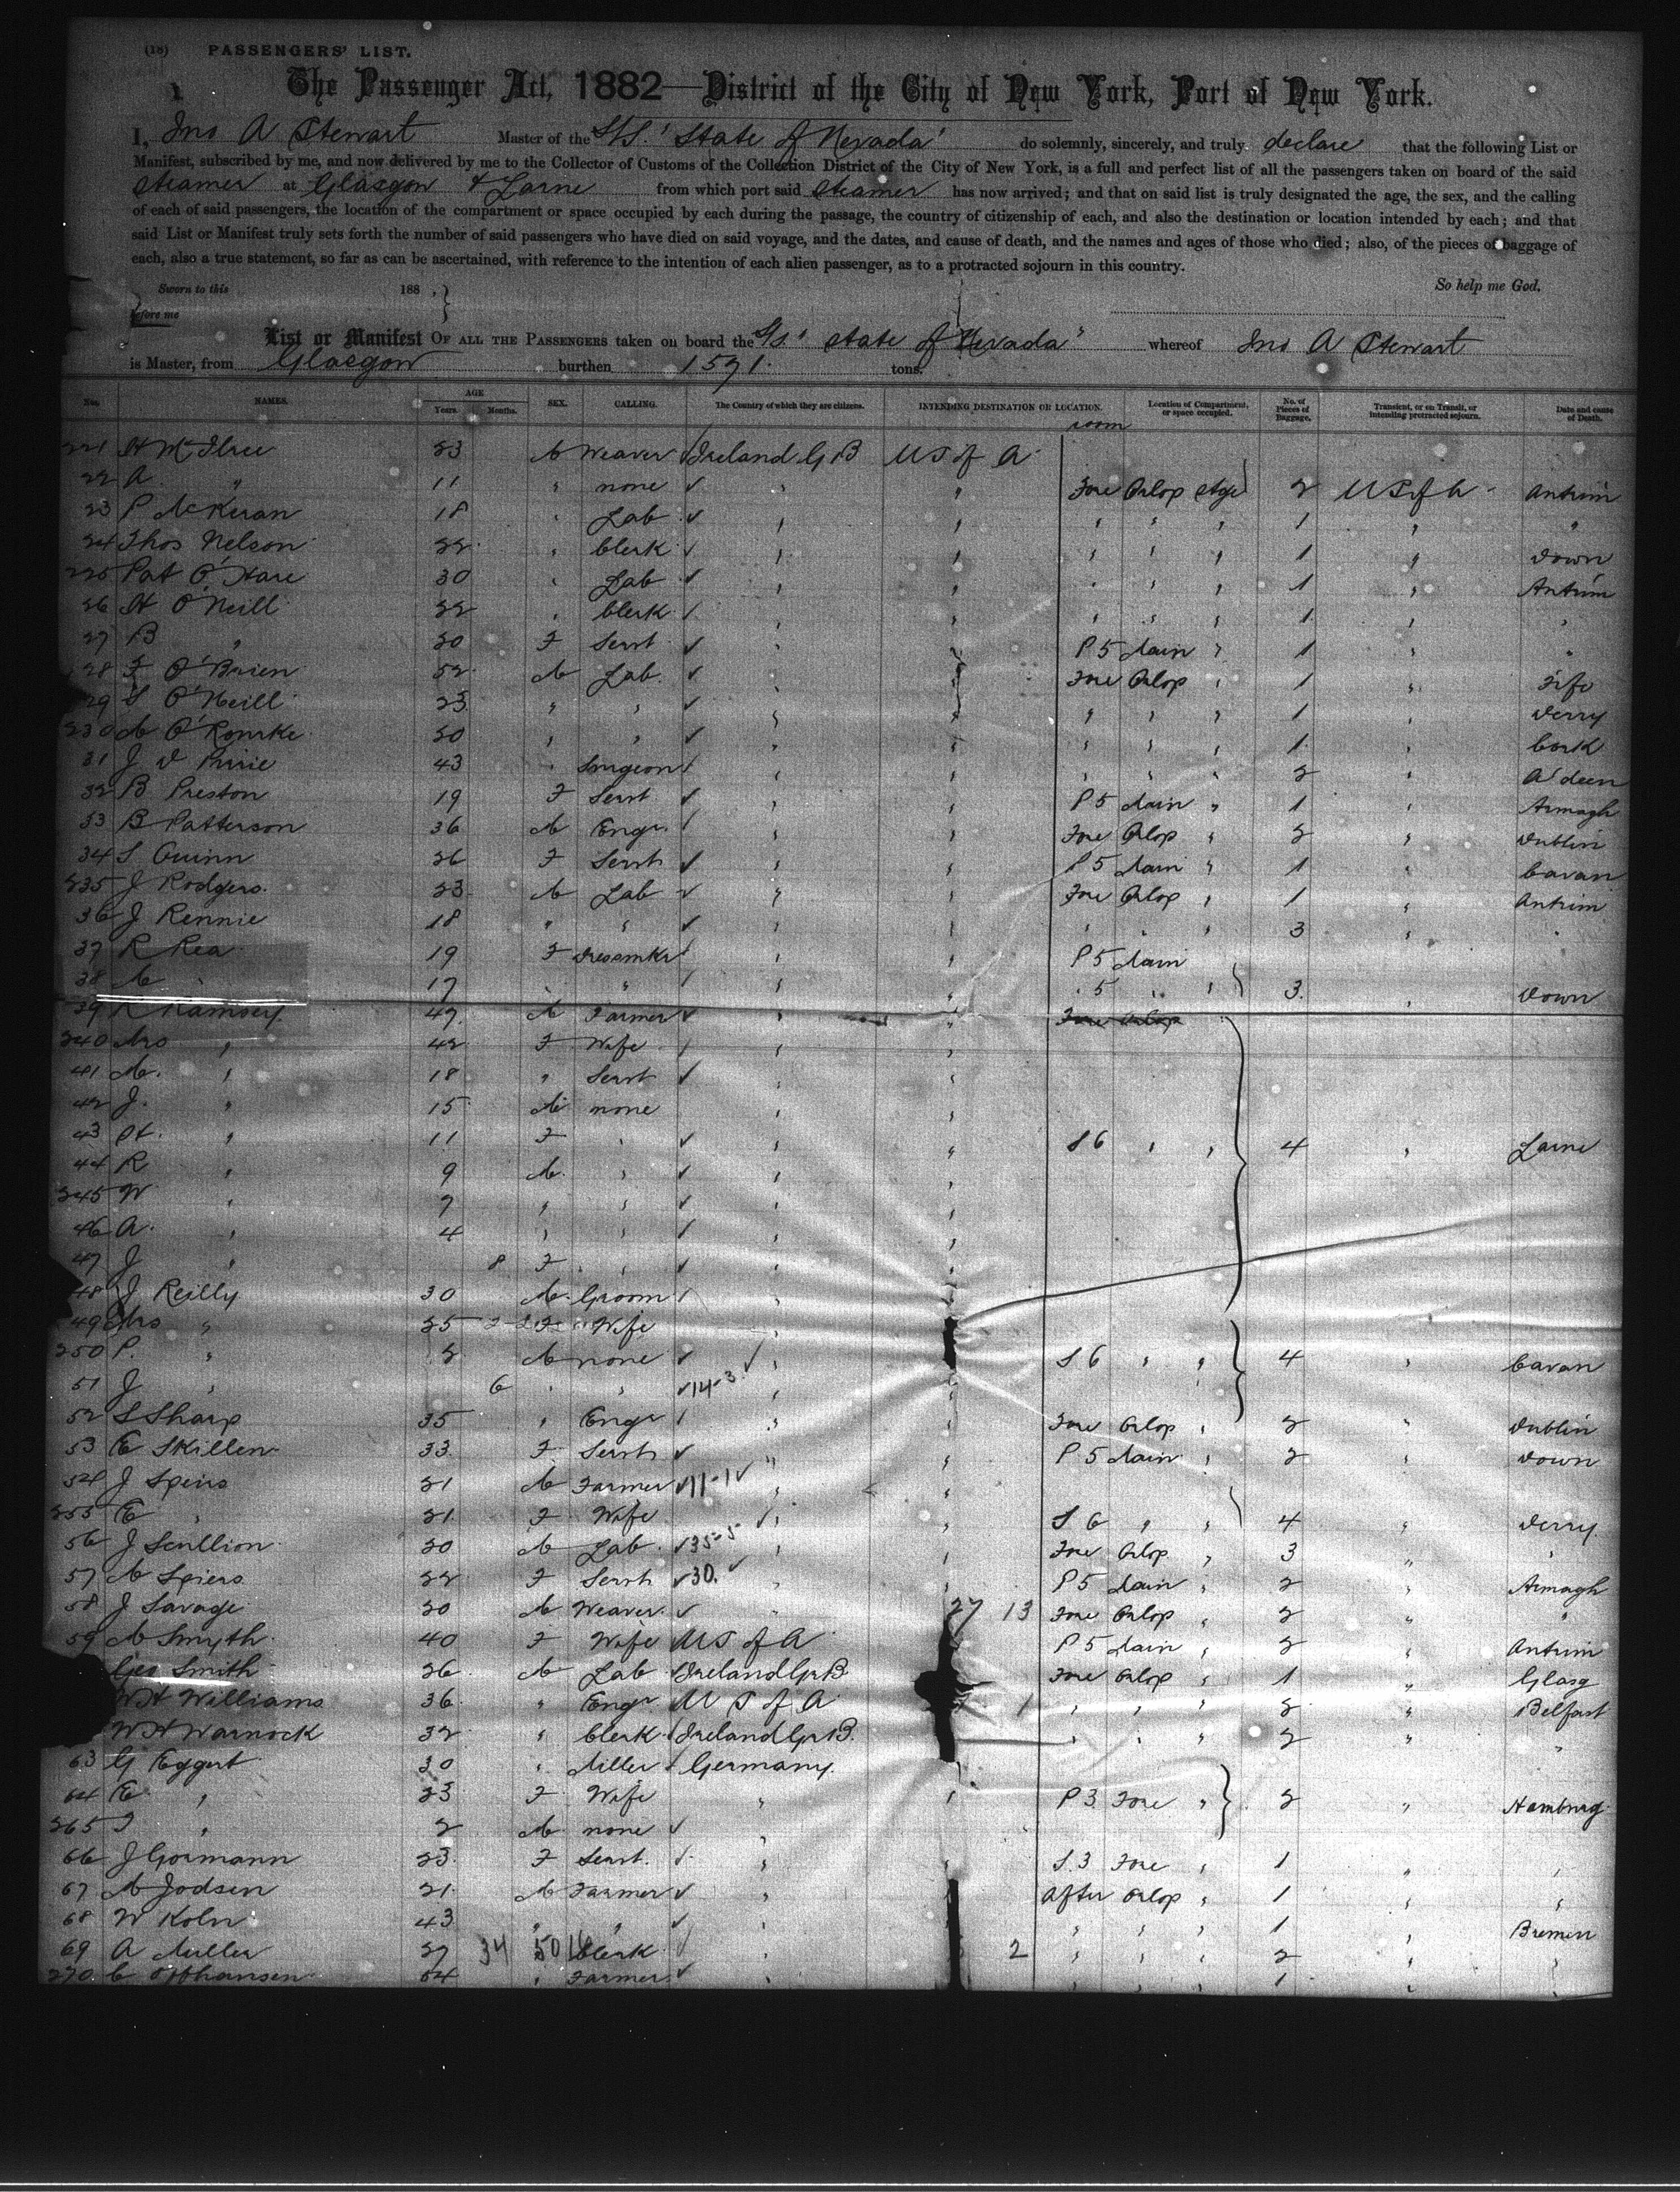 (18) PASSENGERS' LIST.
The Passenger Act, 1882—District of the City of New York, Port of New York.
I, Jno A Stewart Master of the S/S. "State of Nevada" do solemnly, sincerely, and truly declare that the following List or
Manifest, subscribed by me, and now delivered by me to the Collector of Customs of the Collection District of the City of New York, is a full and perfect list of all the passengers taken on board of the said
steamer at Glasgow & Larne from which port said steamer has now arrived; and that on said list is truly designated the age, the sex, and the calling
of each of said passengers, the location of the compartment or space occupied by each during the passage, the country of citizenship of each, and also the destination or location intended by each; and that
said List or Manifest truly sets forth the number of said passengers who have died on said voyage, and the dates, and cause of death, and the names and ages of those who died; also, of the pieces of baggage of
each, also a true statement, so far as can be ascertained, with reference to the intention of each alien passenger, as to a protracted sojourn in this country.
Sworn to this 188 . } So help me God.
before me
List or Manifest OF ALL THE PASSENGERS taken on board the S/S. "State of Nevada" whereof Jno A Stewart
is Master, from Glasgow burthen 1591. tons.
Nos. NAMES. AGE Years. Months. SEX. CALLING. The Country of which they are citizens. INTENDING DESTINATION OR LOCATION. Location of Compartment, or space occupied. No. of Pieces of Baggage. Transient, or on Transit, or Intending protracted sojourn. Date and cause of Death.
room
221 23 M Weaver Ireland G B US of A
22 A " 11 " none " " Fore Orlop Stge 2 US of A Antrim
23 P McKeran 18 " Lab " " " " " 1 " "
24 Thos Nelson 22 " Clerk " " " " " 1 " Down
225 Pat O'Hare 30 " Lab " " " " " 1 " Antrim
26 H O'Neill 22 " Clerk " " " " " 1 " "
27 B " 20 F Servt " " P 5 Main " 1 " "
28 F O'Brien 52 M Lab " " Fore Orlop " 1 " Fife
29 S O'Neill 23 " " " " " " " 1 " Derry
230 M O'Rourke 20 " " " " " " " 1 " Cork
31 J D Pirrie 43 " Surgeon " " " " " 2 " A'deen
32 B Preston 19 F Servt " " P 5 Main " 1 " Armagh
33 B Patterson 36 M Engr. " " Fore Orlop " 2 " Dublin
34 S Quinn 26 F Servt " " P 5 Main " 1 " Cavan
235 J Rodgers 23 M Lab " " Fore Orlop " 1 " Antrim
36 J Rennie 18 " " " " " " " 3 " "
37 R Rea 19 F Dressmkr " " P 5 Main
38 M " 17 " " " " " 5 " " } 3 " Down
39 R Ramsey 47 M Farmer " " Fore Orlop
240 Mrs " 42 F Wife " "
41 M. " 18 " Servt " "
42 J. " 15 M none " "
43 " 11 F " " " S 6 " " 4 " Larne
44 R " 9 M " " "
245 W " 7 " " " "
46 A. " 4 " " " "
47 J " 8 F " " "
48 J Reilly 30 M Groom " "
49 Mrs " 25 F Wife " "
250 P. " 2 M none " " S 6 " " } 4 " Cavan
51 J " 6 " " 14-3 " "
52 S Sharp 35 " Engr " " Fore Orlop " 2 " Dublin
53 E Skillen 33 F Servt " " P 5 Main " 2 " Down
54 J Speirs 21 M Farmer 11-1 " "
255 E " 21 F Wife " " S 6 " " 4 " Derry
56 J Scullion 20 M Lab. 35-5 " " Fore Orlop " 3 " "
57 M Spiers 22 F Servt 30. " " P 5 Main " 2 " Armagh
58 J Savage 20 M Weaver " 27 13 Fore Orlop " 2 " "
59 M Smyth 40 F Wife US of A P 5 Main " 2 " Antrim
Geo Smith 26 M Lab Ireland Gr B. Fore Orlop " 1 " Glasg
WH Williams 36 " Engr U S of A 1 " " " 2 " Belfast
WH Warnock 32 " Clerk Ireland Gr B. " " " 2 " "
63 G Eggert 30 " Miller Germany.
64 E " 23 F Wife " " P 3 Fore " } 2 " Hamburg
265 " 2 M none "
66 J Gormann 23 F Servt. " " S.3 Fore " 1 " "
67 M Jodsen 21 M Farmer " After Orlop " 1 " "
68 W Koln 43 " " " " " " 1 " Bremen
69 A Muller 27 34 50 Clerk " 2 " " " 2 " "
270 C 54 " Farmer " " " " 1 " "